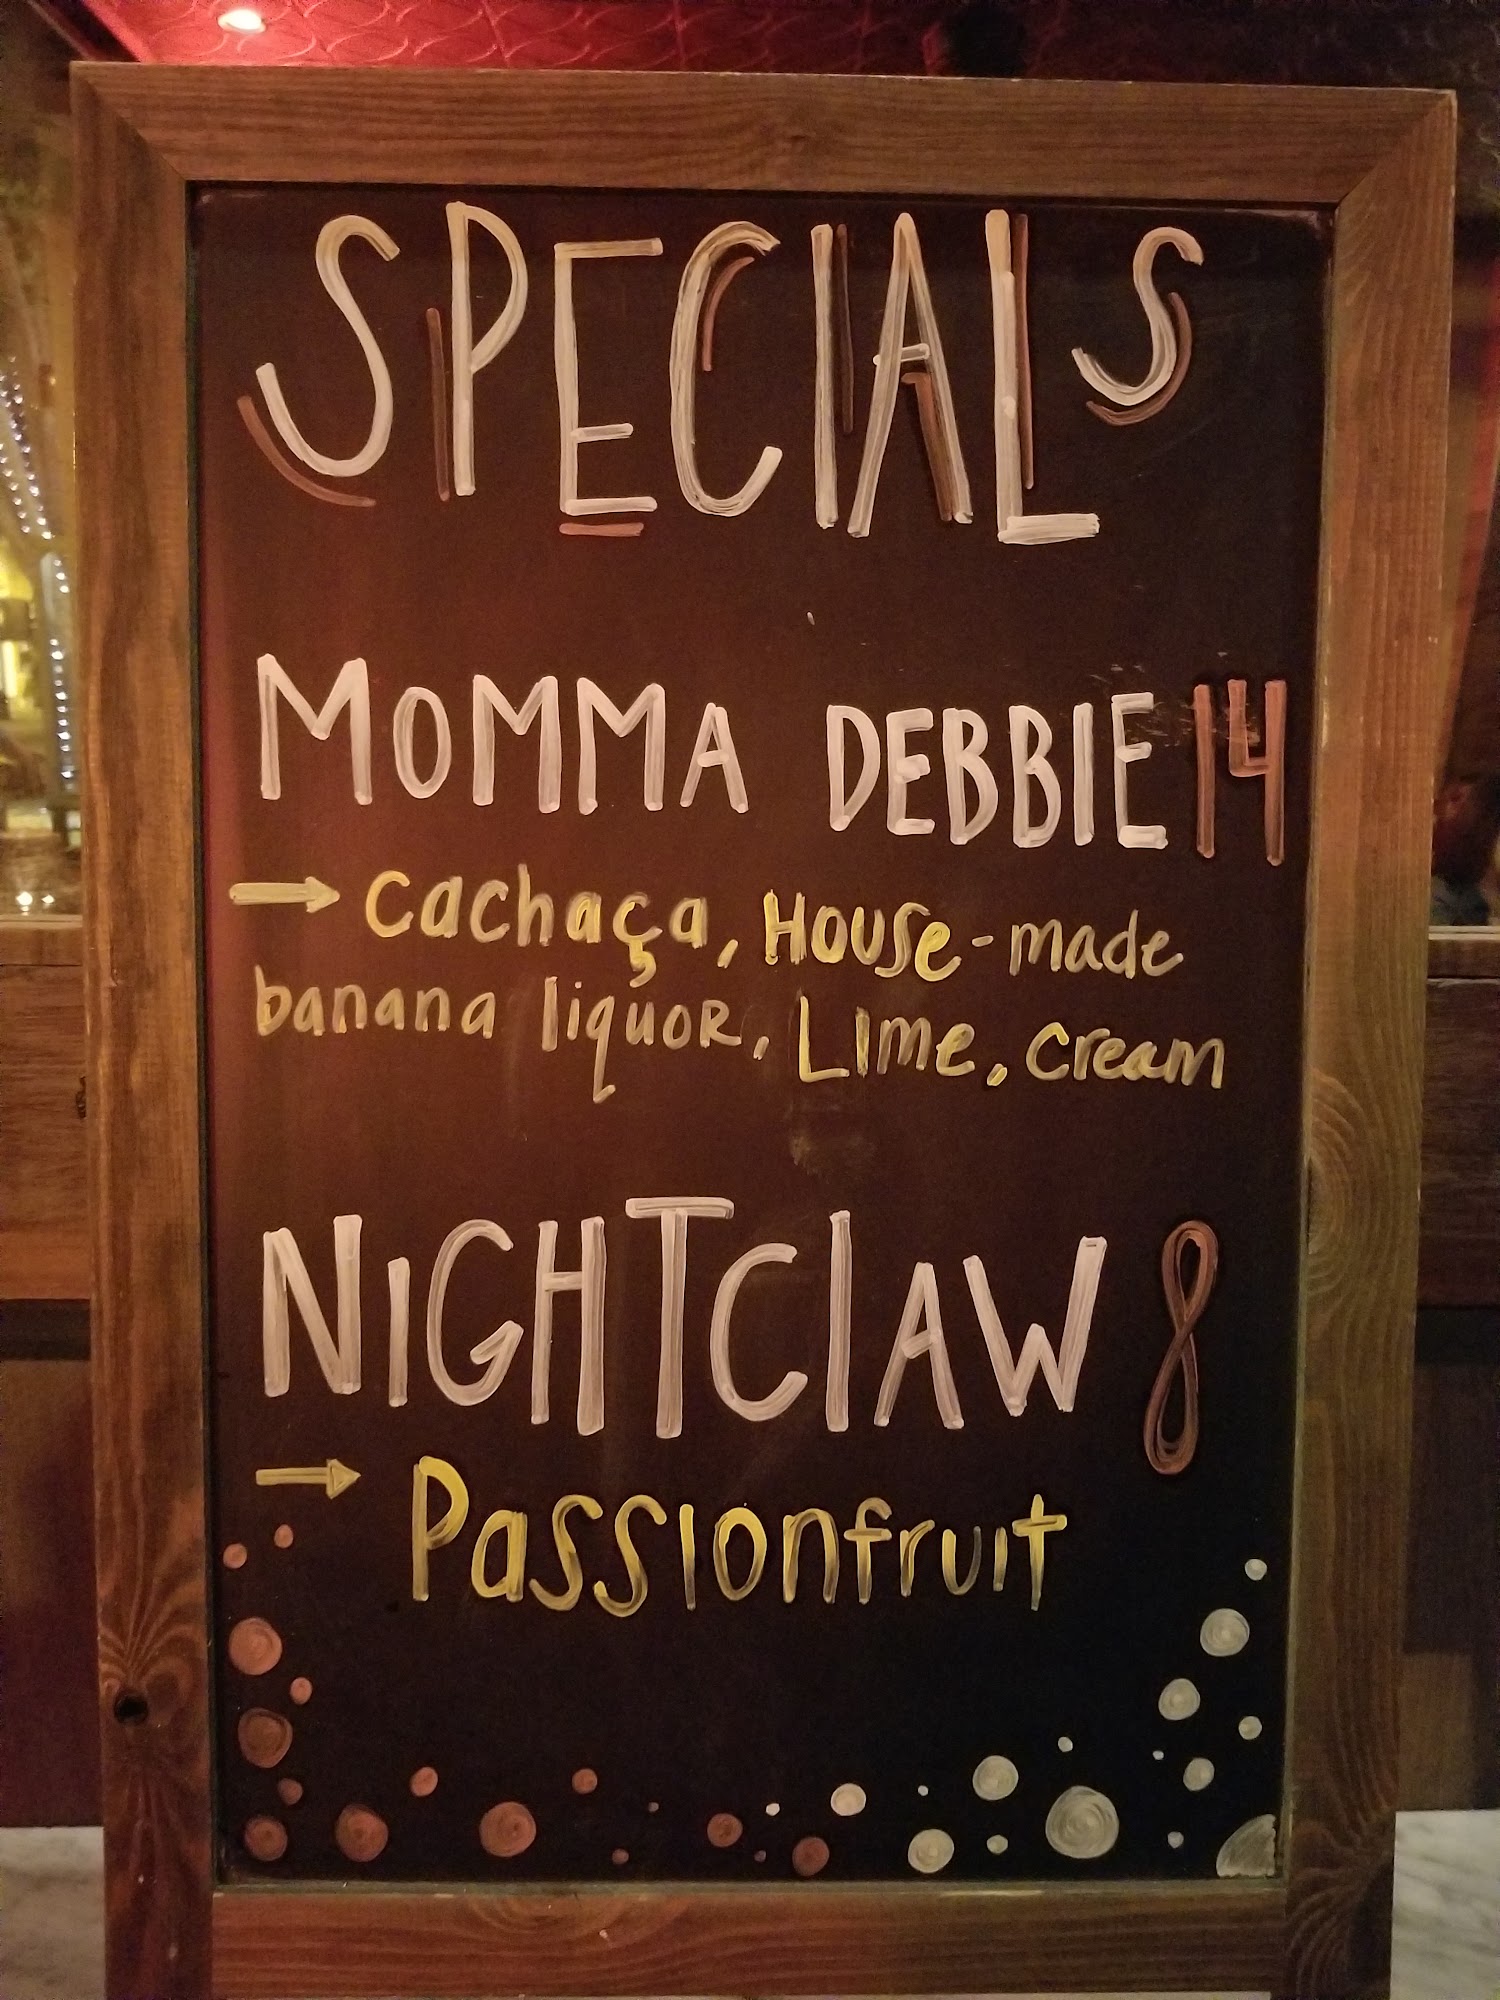 SPECIALS
MOMMA DEBBIE 14
→ Cachaça, House-made
banana liquor, Lime, Cream
NIGHTCLAW 8
→ Passionfruit